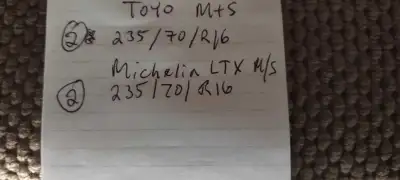 TOYO M+S
2 235/70/R16
Michelin LTX M/S
2 235/70/R16